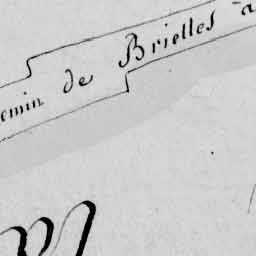 emin de Brielles à